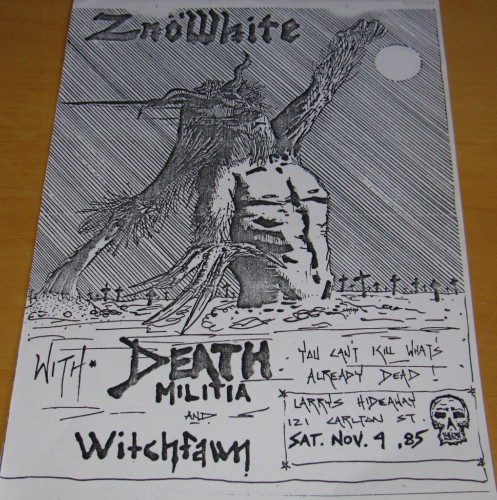 ZnöWhite
WITH
DEATH
MILITIA
AND
Witchfawn
YOU CAN'T KILL WHAT'S
ALREADY DEAD!
LARRYS HIDEAWAY
121 CARLTON ST.
SAT. NOV. 9 .85